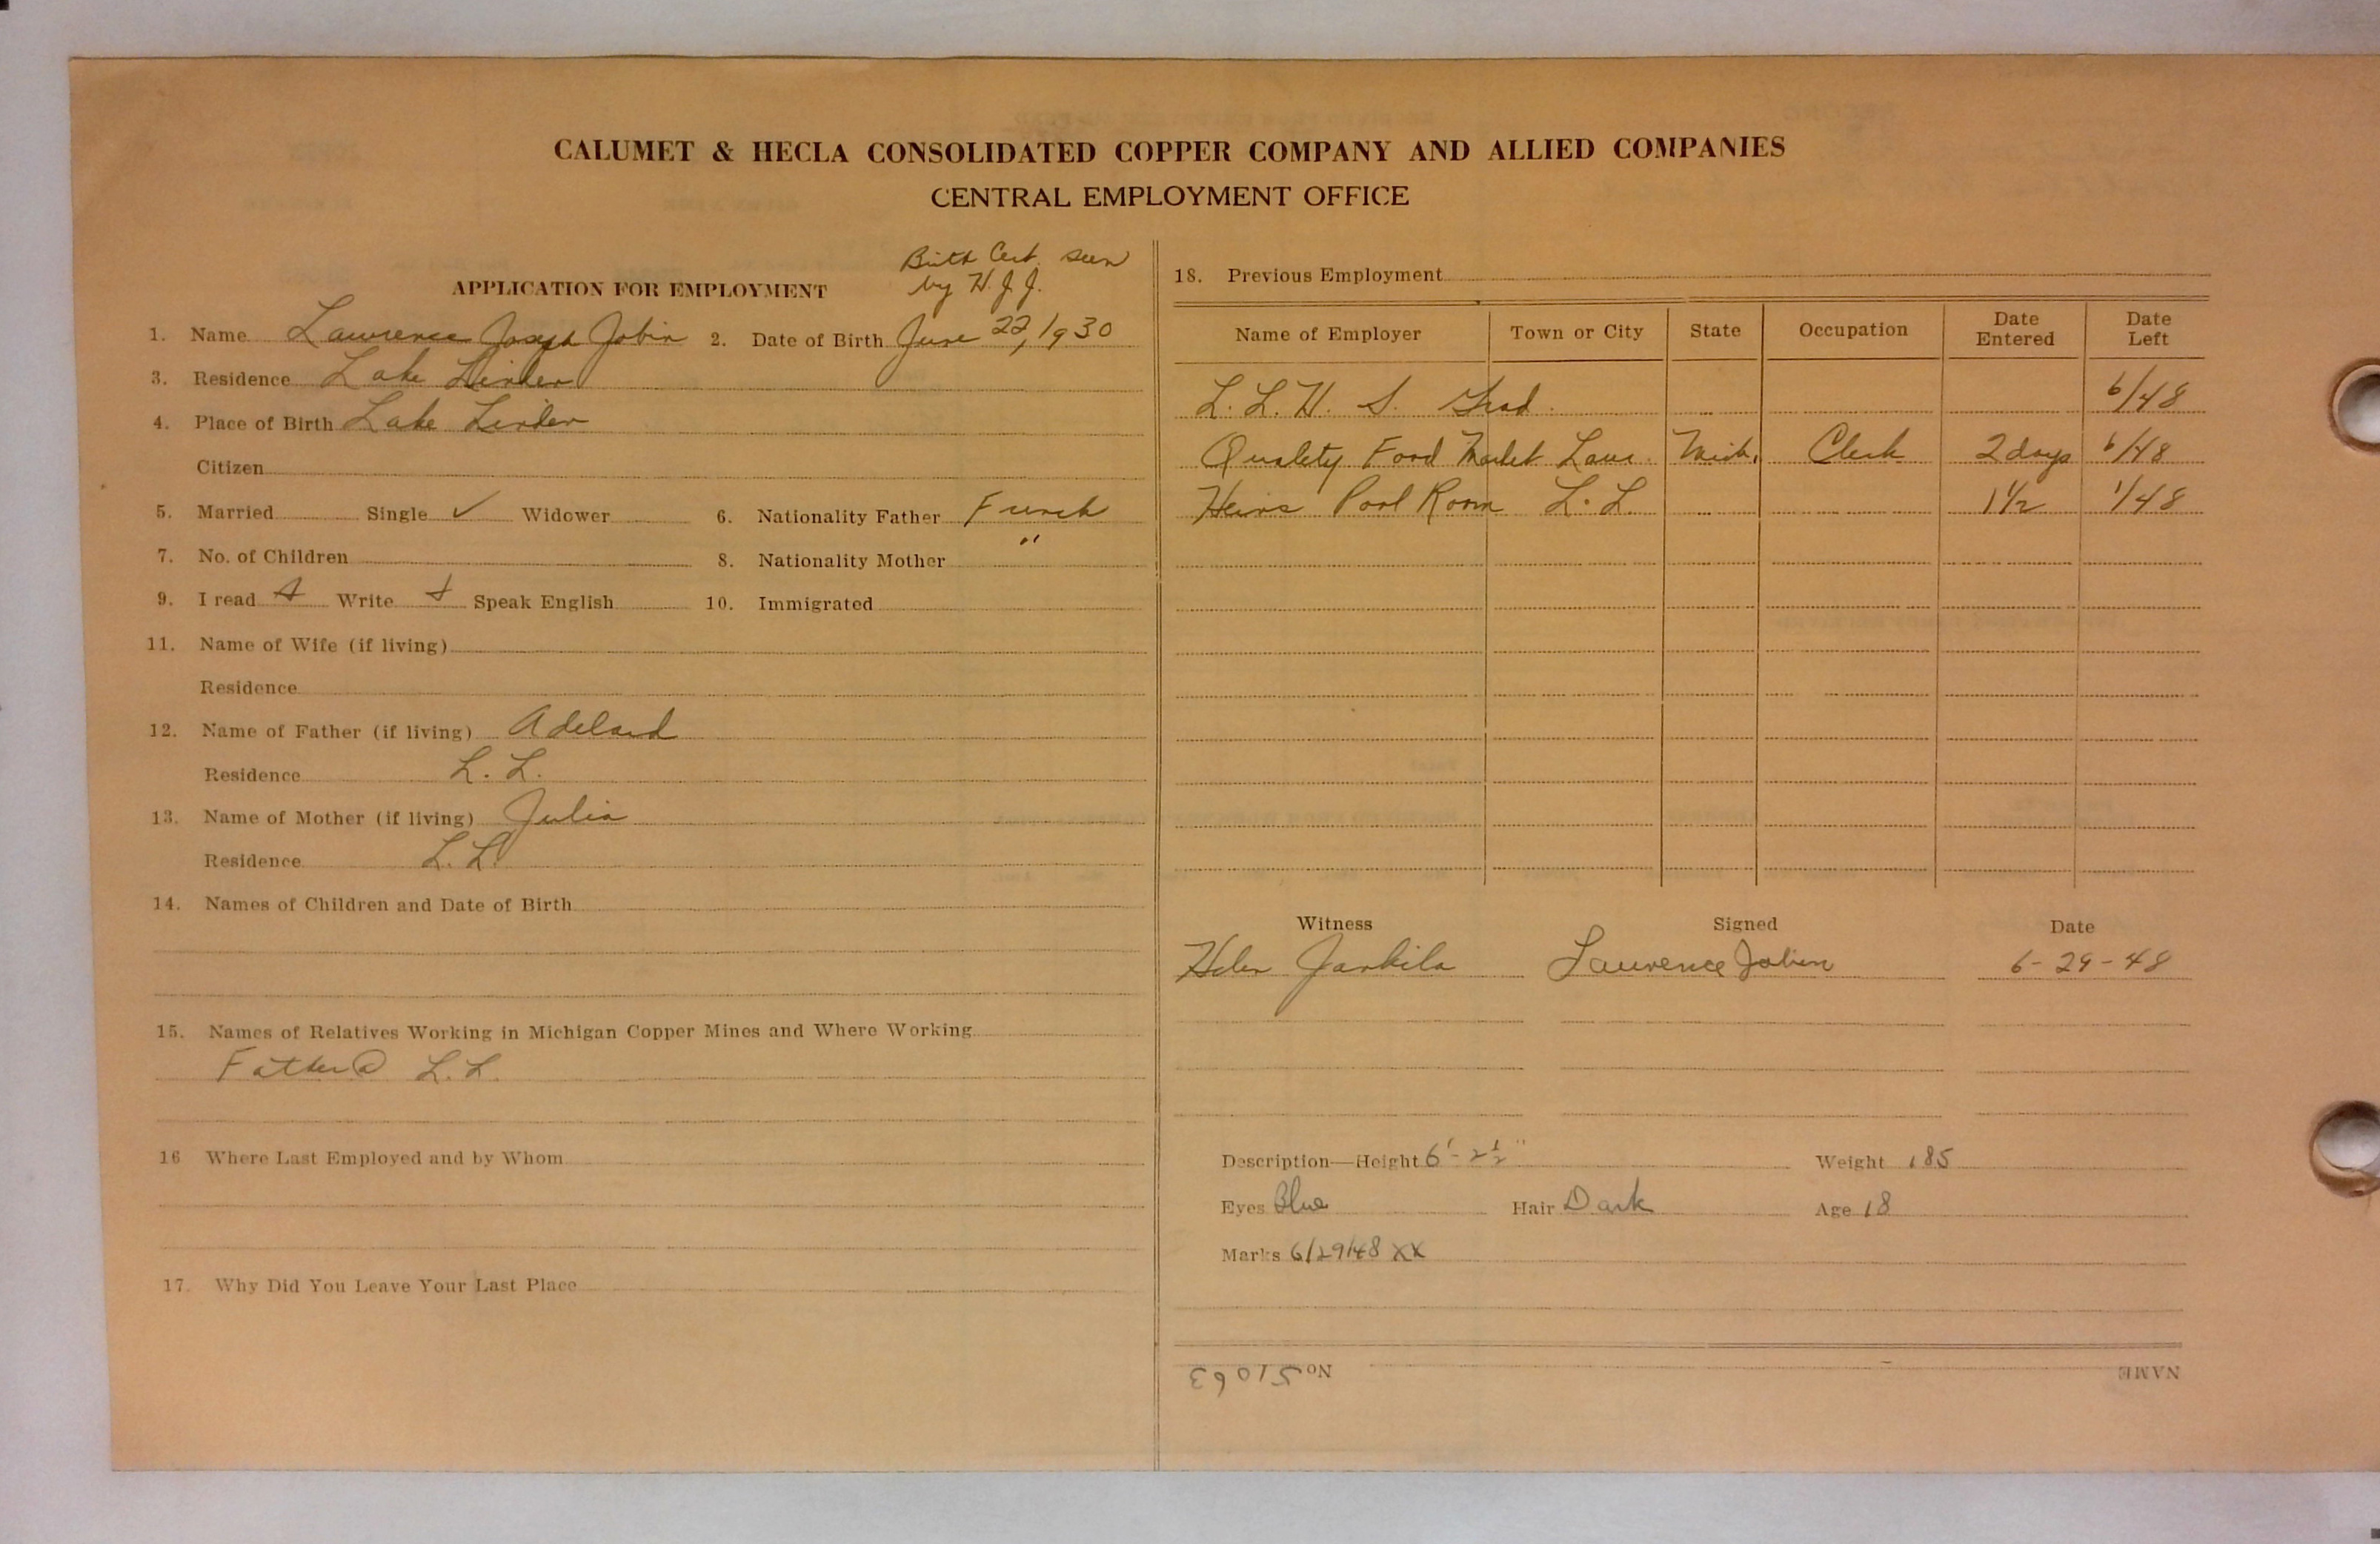 CALUMET & HECLA CONSOLIDATED COPPER COMPANY AND ALLIED COMPANIES
CENTRAL EMPLOYMENT OFFICE
Birth Cert. seen
by H.J.J.
APPLICATION FOR EMPLOYMENT
1. Name Lawrence Joseph Jobin 2. Date of Birth June 22, 1930
3. Residence Lake Linden
4. Place of Birth Lake Linden
Citizen
5. Married Single ✓ Widower 6. Nationality Father French
7. No. of Children 8. Nationality Mother "
9. I read Write Speak English 10. Immigrated
11. Name of Wife (if living)
Residence
12. Name of Father (if living) Adelard
Residence L. L.
13. Name of Mother (if living) Julia
Residence L. L.
14. Names of Children and Date of Birth
15. Names of Relatives Working in Michigan Copper Mines and Where Working
Father @ L.L.
16 Where Last Employed and by Whom
17. Why Did You Leave Your Last Place
18. Previous Employment
Name of Employer Town or City State Occupation Date Entered Date Left
L. L. H. S. Grad. 6/48
Quality Food Market Laur. Mich. Clerk 2 days 6/48
Pool Room L. L. 1½ 1/48
Witness Signed Date
Helen Jarkila Laurence Jobin 6-29-48
Description—Height 6'-2½" Weight 185
Eyes Blue Hair Dark Age 18
Marks 6/29/48 XX
NAME No 51063